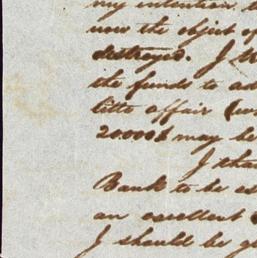 my intention
now the object of
destroyed. I
the funds to ad
little affair
20000$ may be
I than
Bank to be es
an excellent
I should be gl